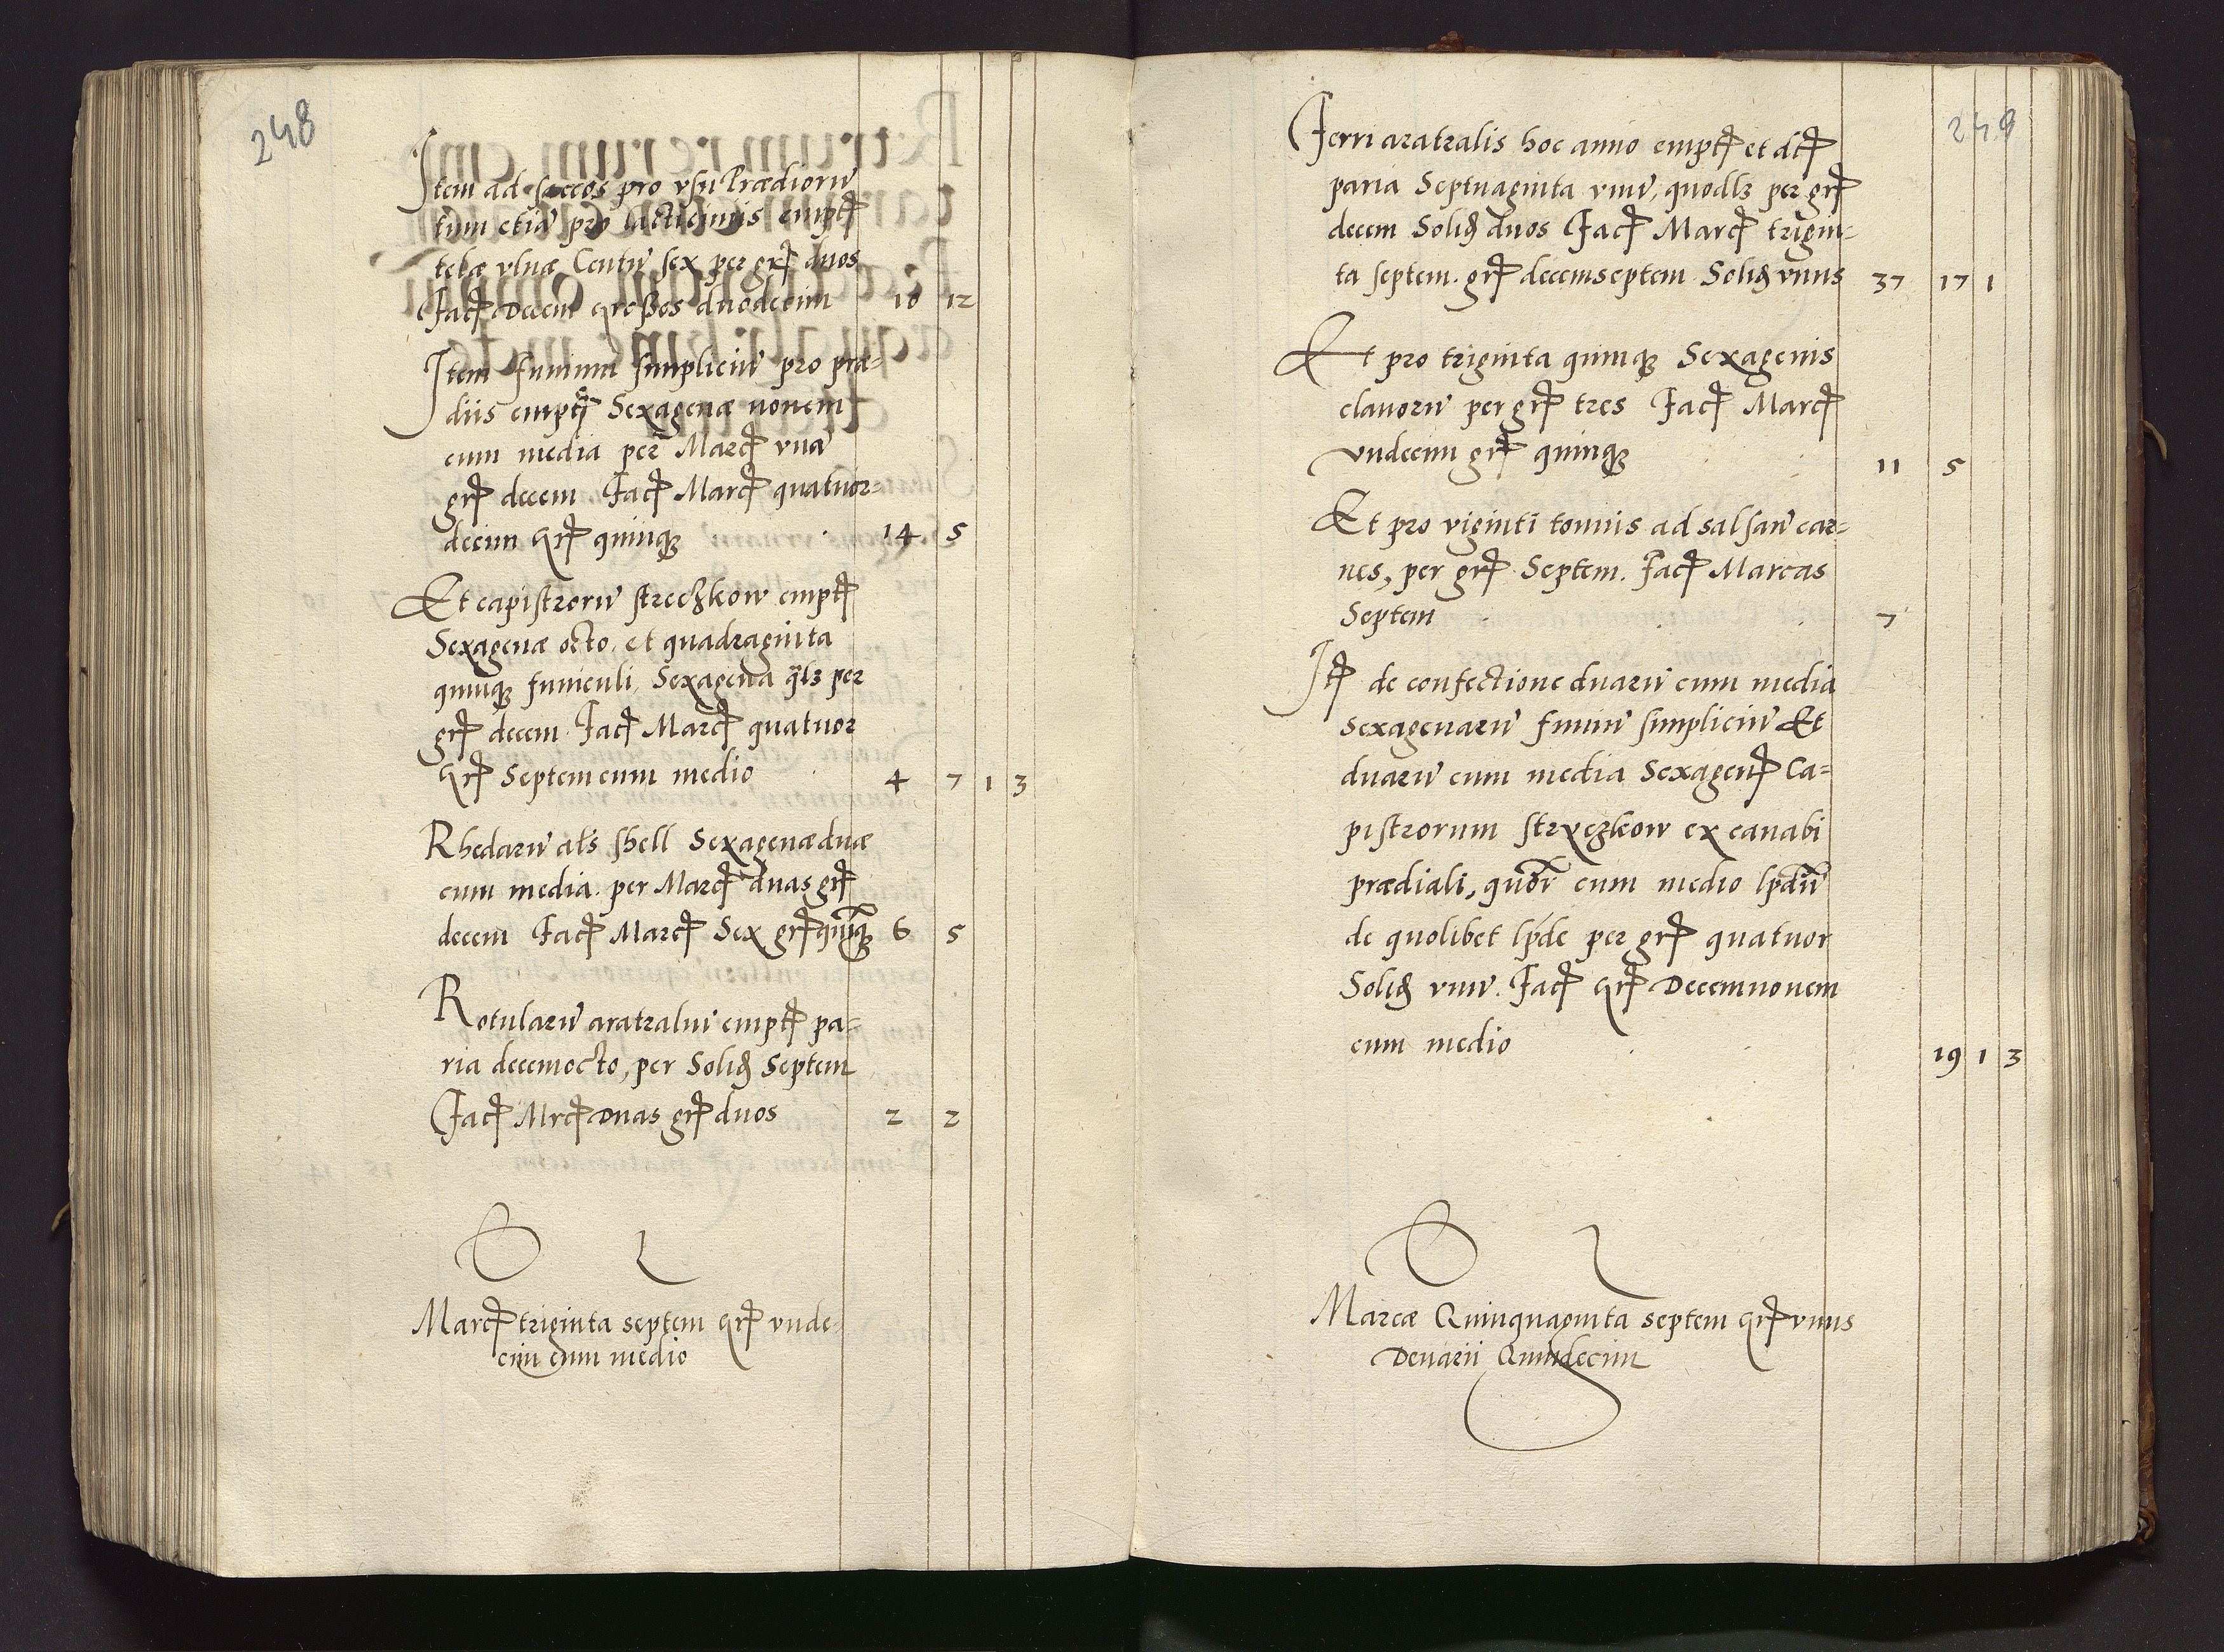 248
Item ad saccos pro vsu Prædiorū
tum etiā pro lacticiniis empt
telæ vlnæ Centū sex per gr duos
fac Decem grossos duodecim 10 12
Item funium simpliciū pro præ=
diis empti Sexagenæ nouem
cum media per Marc vnā
gr decem fac Marc quatuor=
decim gr quinq 14 5
Et capistrorū streczkow empt
Sexagenæ octo et quadraginta
quinq funiculi, Sexagena qlz per
gr decem fac Marc quatuor
gr Septem cum medio 4 7 1 3
Rhedarū als shell Sexagenæ duæ
cum media per Marc duas gr
decem fac Marc Sex gr quinq 6 5
Rotularū aratraliū empt pa=
ria decemocto, per Solid Septem
fac Mrc Duas gr duos 2 2
Marc triginta septem gr vnde=
cim cum medio
249
Ferri aratralis hoc anno empt et dt
paria Septuaginta vnū, quodlz per gr
decem Solid duos fac Marc trigin=
ta septem gr decemseptem Solid vnus 37 17 1
Et pro triginta quinq Sexagenis
clauorū per gr tres fac Marc
vndecim gr quinq 11 5
Et pro viginti tonnis ad salsan car=
nes, per gr Septem. fac Marcas
Septem 7
It de confectione duarū cum media
Sexagenarū funiū simpliciū Et
duarū cum media Sexagen Ca=
pistrorum stryczkow ex canabi
prædiali, quor cum medio lpdū
de quolibet lpde per gr quatuor
Solid vnū. fac gr Decemnouem
cum medio 19 1 3
Marcæ Quinquaginta septem gr vnus
Denarii Quindecim